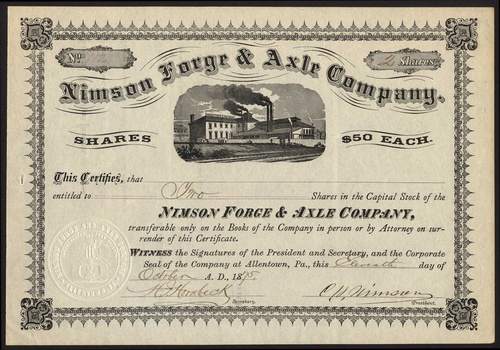 No.
2 Shares
Nimson Forge & Axle Company.
SHARES
$50 EACH.
This Certifies, that
entitled to Two Shares in the Capital Stock of the
NIMSON FORGE & AXLE COMPANY,
transferable only on the Books of the Company in person or by Attorney on sur-
render of this Certificate.
WITNESS the Signatures of the President and Secretary, and the Corporate
Seal of the Company at Allentown, Pa., this Eleventh day of
October A. D., 1875.
Secretary.
O W Nimson
President.